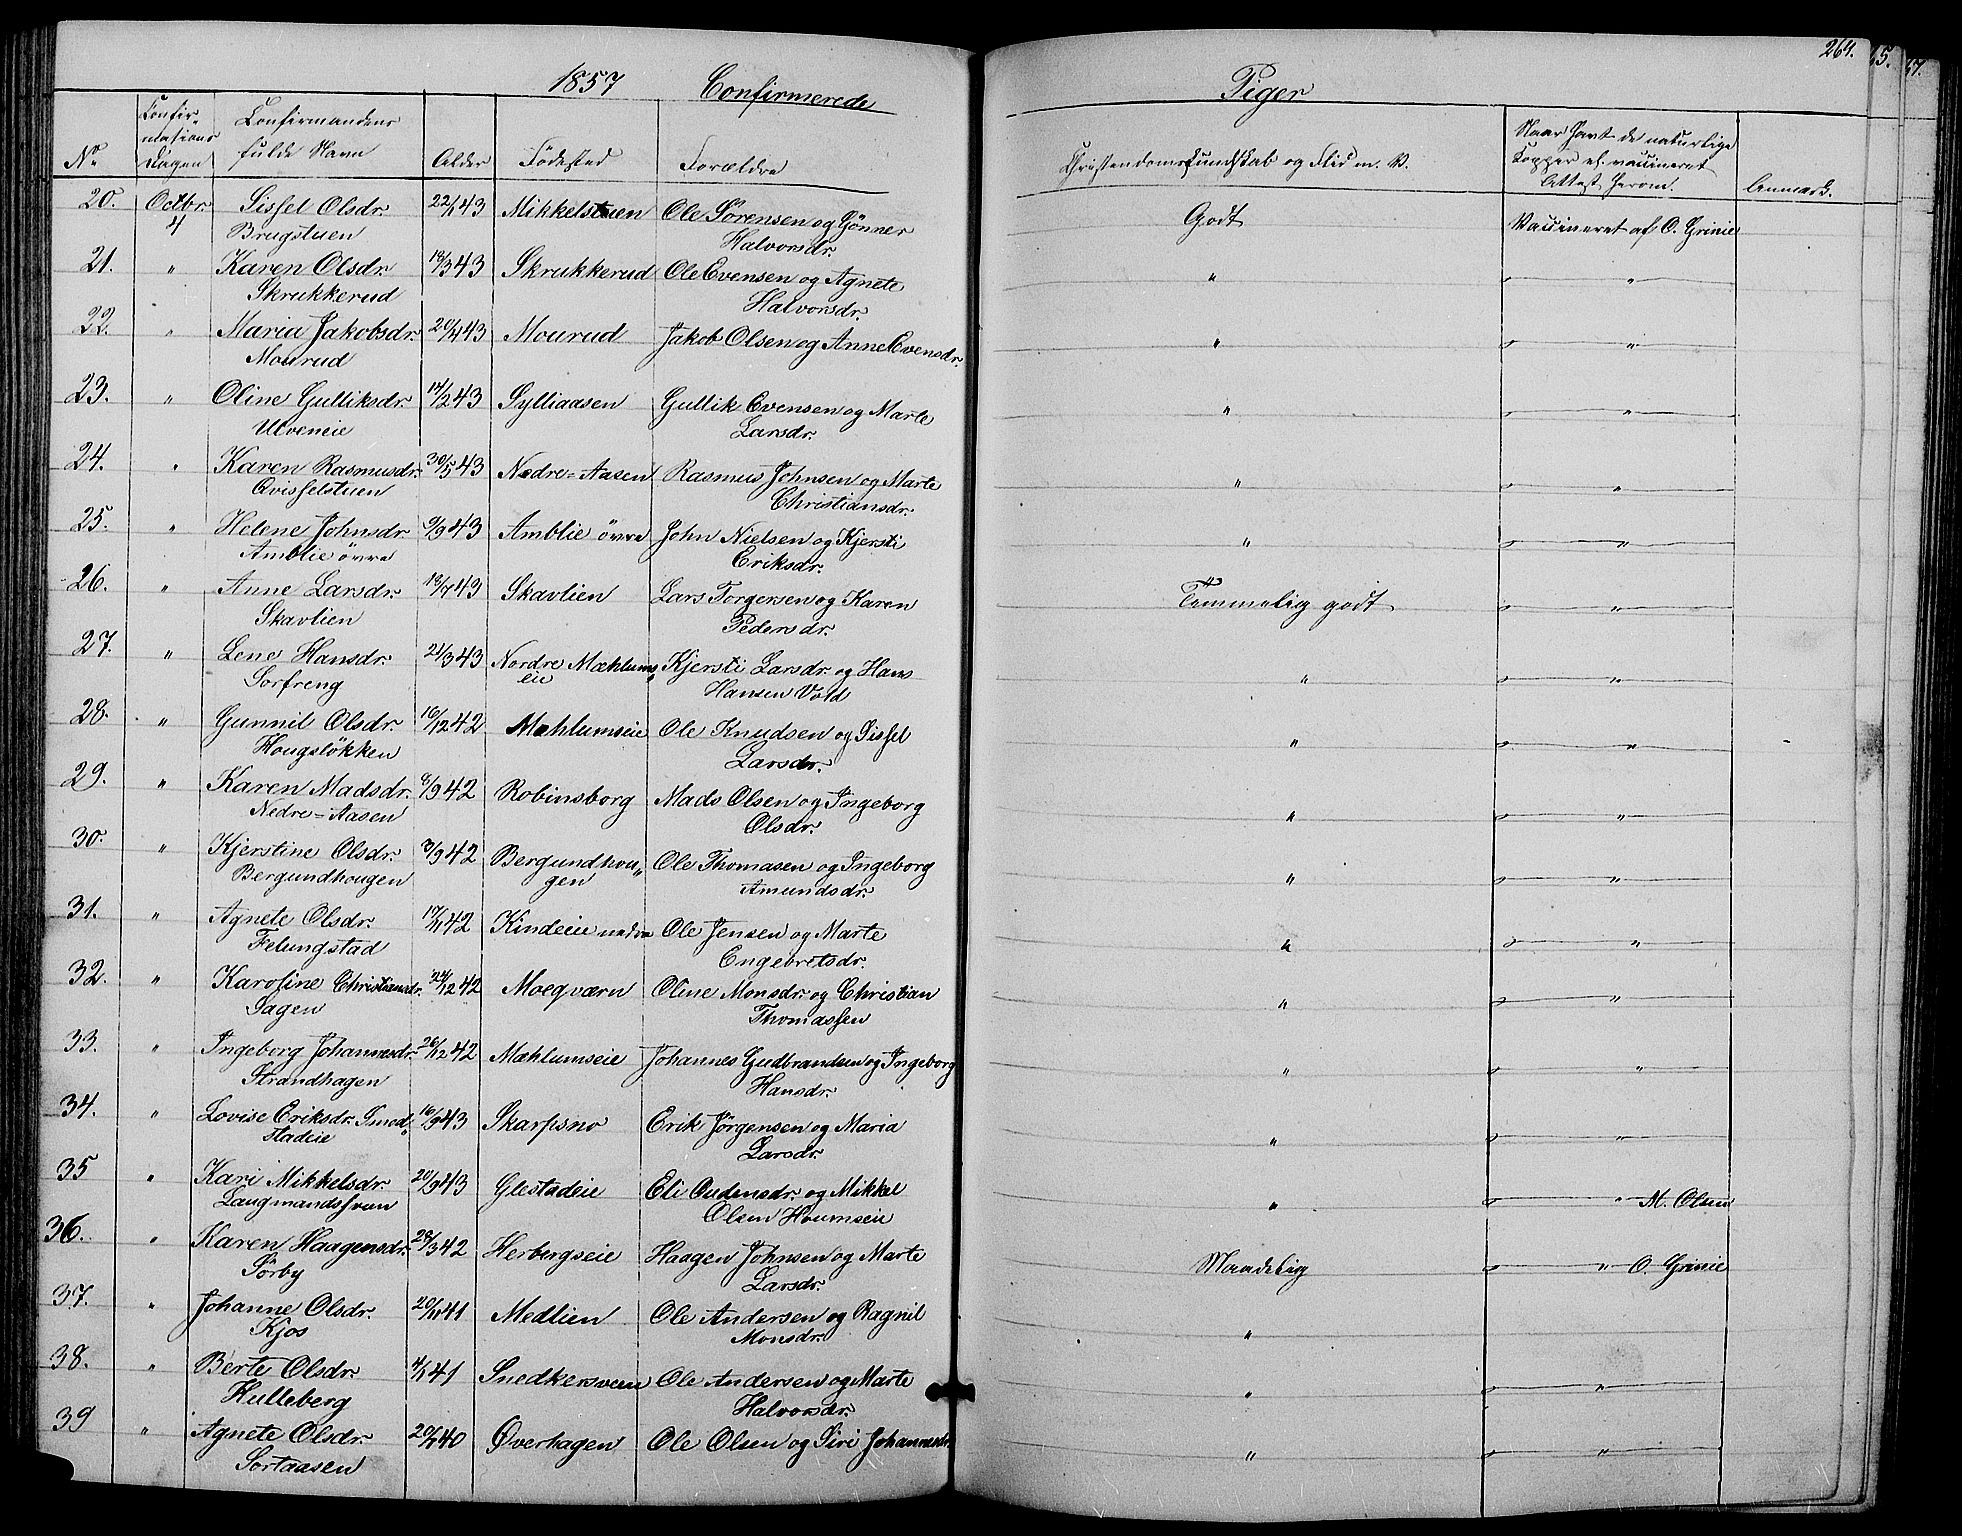 264. 65. 67.
1857 Confirmerede Piger
No
Confir-
mations
Dagen
Confirmandens
fulde Navn
Alder
Födested
Forældre
Christendomskundskab og Flid m. V.
Naar havt de naturlige
Kopper el. vaccineret
Attest herom.
Anmærk.
20. Octbr. 4 Sissel Olsdr. 22/1 43 Mikkelstuen Ole Sörensen og Gönner Godt Vaccineret af O. Grinie
Brugstuen Halvorsdr.
21. " Karen Olsdr. 18/3 43 Skrukkerud Ole Evensen og Agnete " "
Skrukkerud Halvorsdr.
22. " Maria Jakobsdr. 43 Mourud Jakob Olsen og Anne Evensdr. " "
Mourud
23. " Oline Gulliksdr. 14/2 43 Sylliaasen Gullik Evensen og Marte " "
Ulveneie Larsdr.
24. " Karen Rasmusdr. 30/5 43 Nedre=Aasen Rasmus Johnsen og Marte " "
Qvisselstuen Christiansdr.
25. " Helene Johnsdr. 9/9 43 Amblie övre John Nielsen og Kjersti " "
Amblie övre Eriksdr.
26. " Anne Larsdr. 18/7 43 Skavlien Lars Torgersen og Karen Temmelig godt "
Skavlien Pedersdr.
27. " Lene Hansdr. 21/3 43 Nordre Mæhlums Kjersti Larsdr. og Hans " "
Sorfreng eie Hansen Vold
28. " Gunnil Olsdr. 16/12 42 Mæhlumseie Ole Knudsen og Sissel " "
Hougslökken Larsdr.
29. " Karen Madsdr. 8/9 42 Robinsborg Mads Olsen og Ingeborg " "
Nedre=Aasen Olsdr.
30. " Kjerstine Olsdr. 3/9 42 Bergundhou" Ole Thomasen og Ingeborg " "
Bergundhougen gen Amundsdr.
31. " Agnete Olsdr. 17/11 42 Kindeie nedre Ole Jensen og Marte " "
Felungstad Engebretsdr.
32. " Karoline Christiansdr. 24/12 42 Moeqværn Oline Monsdr. og Christian " "
Sagen Thomassen
33. " Ingeborg Johannesdr. 26/12 42 Mæhlumseie Johannes Gudbrandsen og Ingeborg " "
Strandhagen Hansdr.
34. " Lovise Eriksdr. Smed" 16/9 43 Skarpsno Erik Jörgensen og Maria " "
stadeie Larsdr.
35 " Kari Mikkelsdr. 20/9 43 Glestadeie Eli Oudensdr. og Mikkel " " M. Olsen
Laugmandssven Olsen Houmseie
36. " Karen Haagensdr. 28/3 42 Herbergseie Haagen Johnsen og Marte Maadelig " O. Grinie
Sörby Larsdr.
37. " Johanne Olsdr. 20/11 41 Medlien Ole Andersen og Ragnil "
Kjos Monsdr.
38. " Berte Olsdr. 4/1 41 Snedkersveen Ole Andersen og Marte " "
Kulleberg Halvorsdr.
39 " Agnete Olsdr. 40 Øverhagen Ole Olsen og Siri Johannesdr. " "
Sortaasen